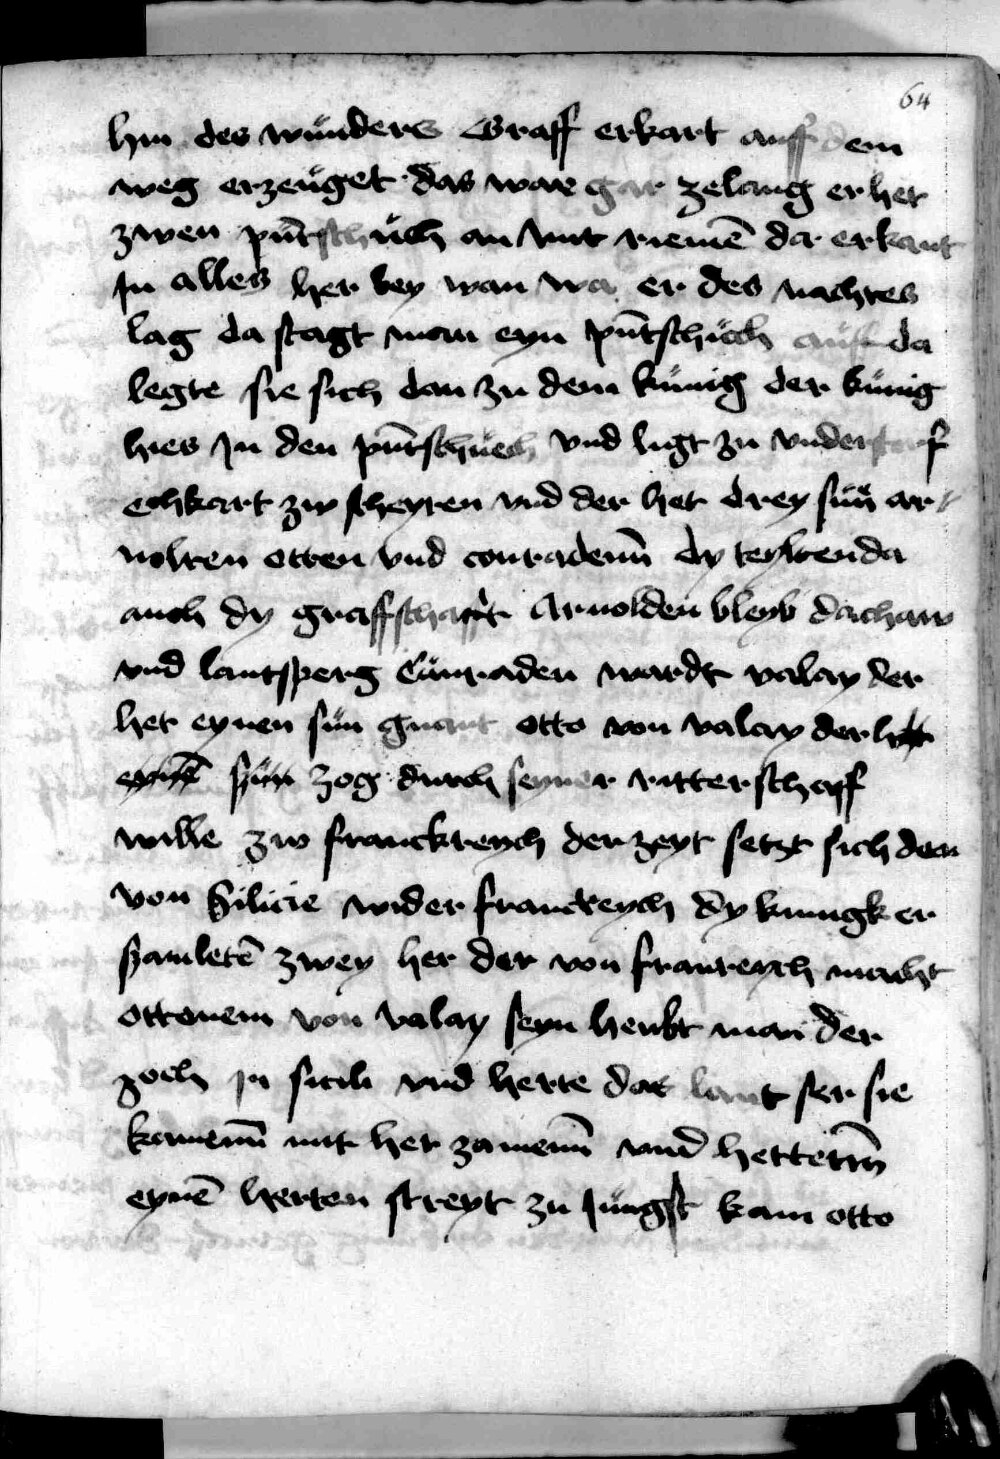 64
hin des wůnders Graff erkart auff dem
weg erzeuget das ware gar zelang er het
zwen pūtschůch an mit riemē da erkant
In alles her bey wan wa er des nachtes
lag da stagt man eyn pūtschůch auf da
legte sie sich dan zu dem kůnig der kůnig
hies In den pūtschůech vnd ligt zu vnderstorf
echkart zw scheyren vnd der het drey sůn ar
nolten otten vnd conradenn̄ dy teylten da
auch dy graffschafft Arnolden bleyb dachaw
vnd lantsperg Cůnraden wardt valay der
het eynen sůn gnant otto von valay der het
eynē sůn zog durch seyner ritterschaff
wille zw franckreych der zeyt setzt sich den
von Silicie wider franckeych dy kunigk er
zamletē zwey her der von franreych macht
ottonem von valay seyn heubt man der
zoch In sicili vnd herte das lant ser sie
kamenn̄ mit her zamenn̄ vnd hettenn̄
eynē herten streyt zu Jůngst kam otto